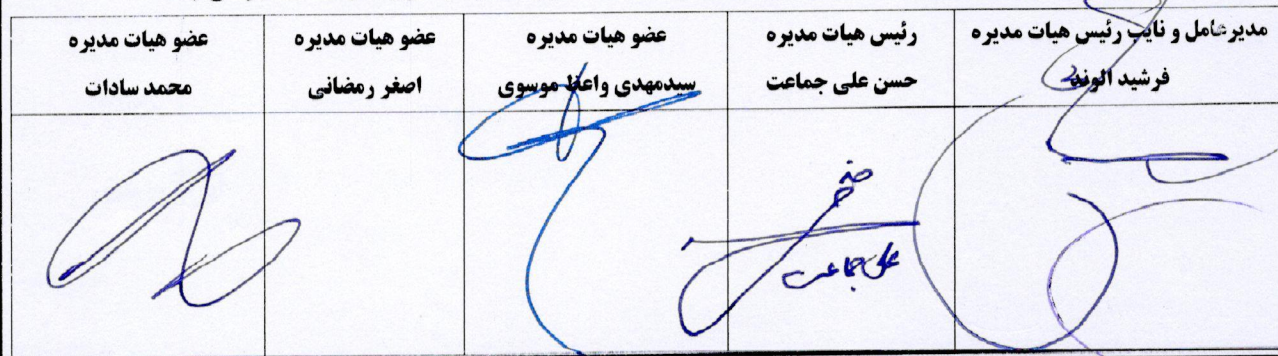 مدیرعامل و نایب رئیس هیات مدیره
فرشید الوند
رئیس هیات مدیره
حسن علی جماعت
عضو هیات مدیره
سیدمهدی واعظ موسوی
عضو هیات مدیره
اصغر رمضانی
عضو هیات مدیره
محمد سادات
علی جماعت